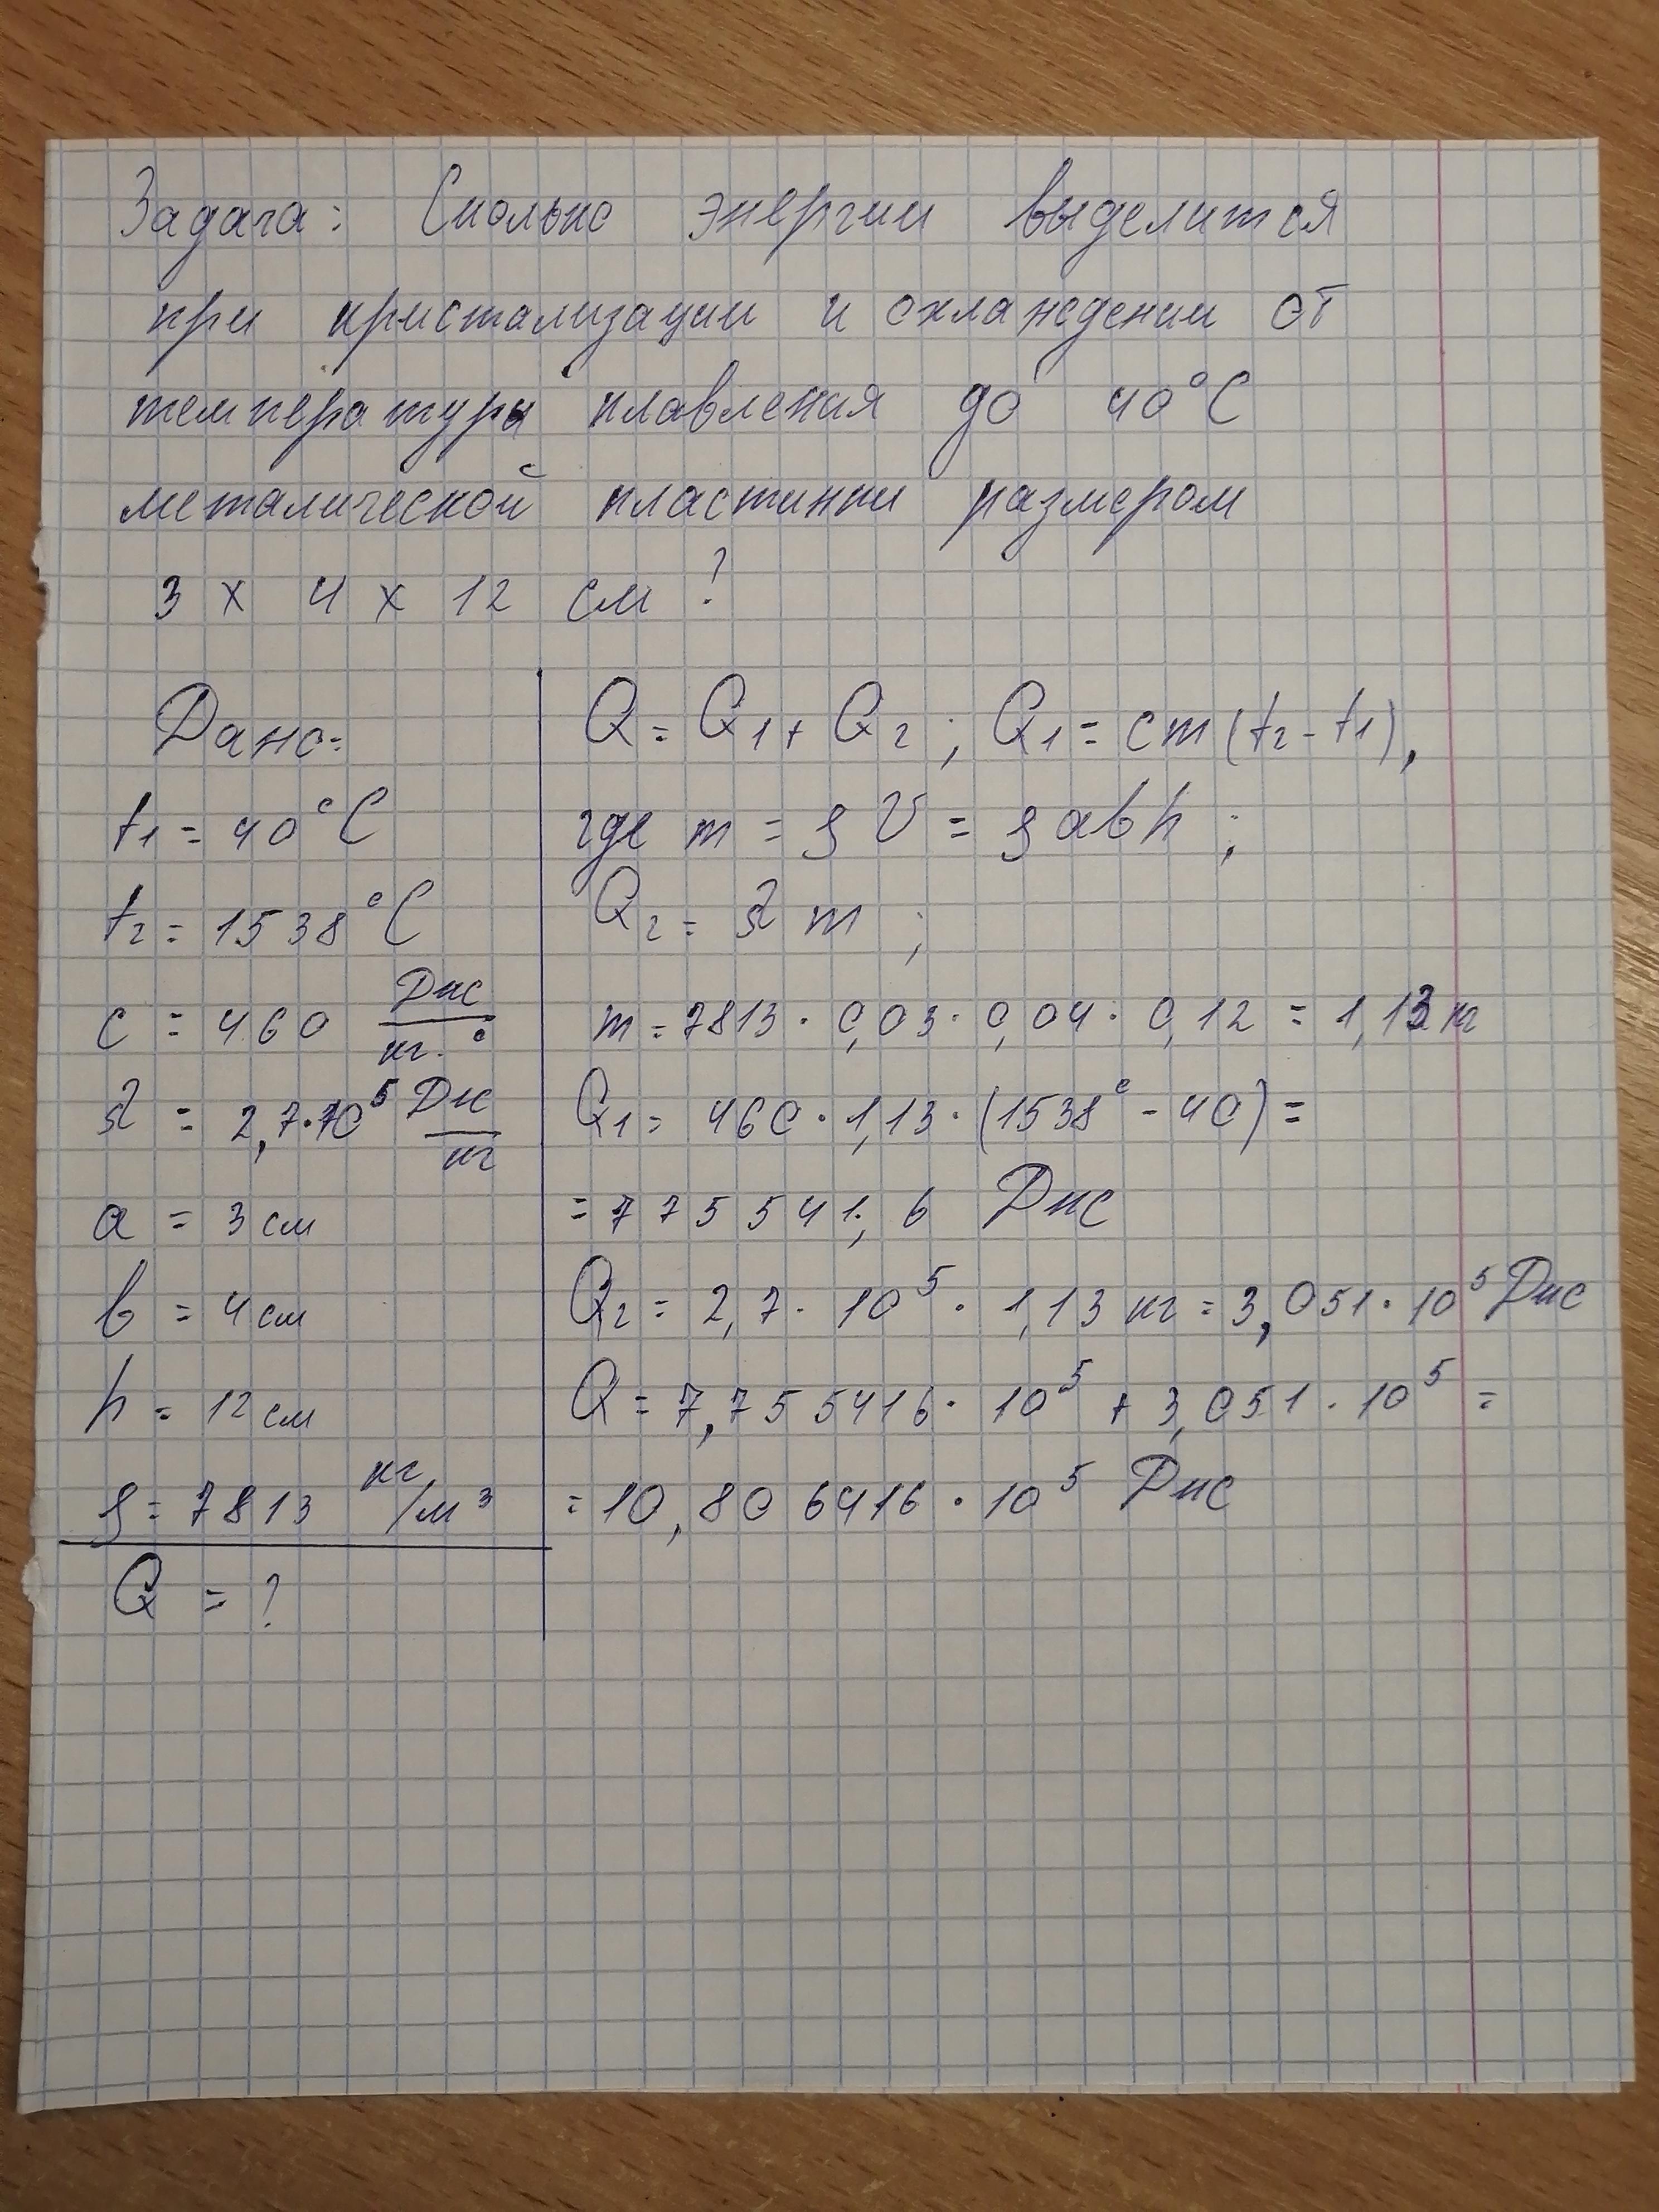 Задача: Сколько энергии выделится
при кристализации и охлаждении от
температуры плавления до 40°C
металической пластинки размером
3 x 4 x 12 см ?
Дано:
t1 = 40°C
t2 = 1538°C
c = 460 Дж/кг·°
λ = 2,7·10⁵ Дж/кг
a = 3 см
b = 4 см
h = 12 см
ρ = 7813 кг/м³
Q = ?
Q = Q1 + Q2 ; Q1 = cm(t2 - t1),
где m = ρV = ρabh ;
Q2 = λm ;
m = 7813 · 0,03 · 0,04 · 0,12 = 1,13 кг
Q1 = 460 · 1,13 · (1538° - 40) =
= 775541,6 Дж
Q2 = 2,7 · 10⁵ · 1,13 кг = 3,051 · 10⁵ Дж
Q = 7,755416 · 10⁵ + 3,051 · 10⁵ =
= 10,806416 · 10⁵ Дж